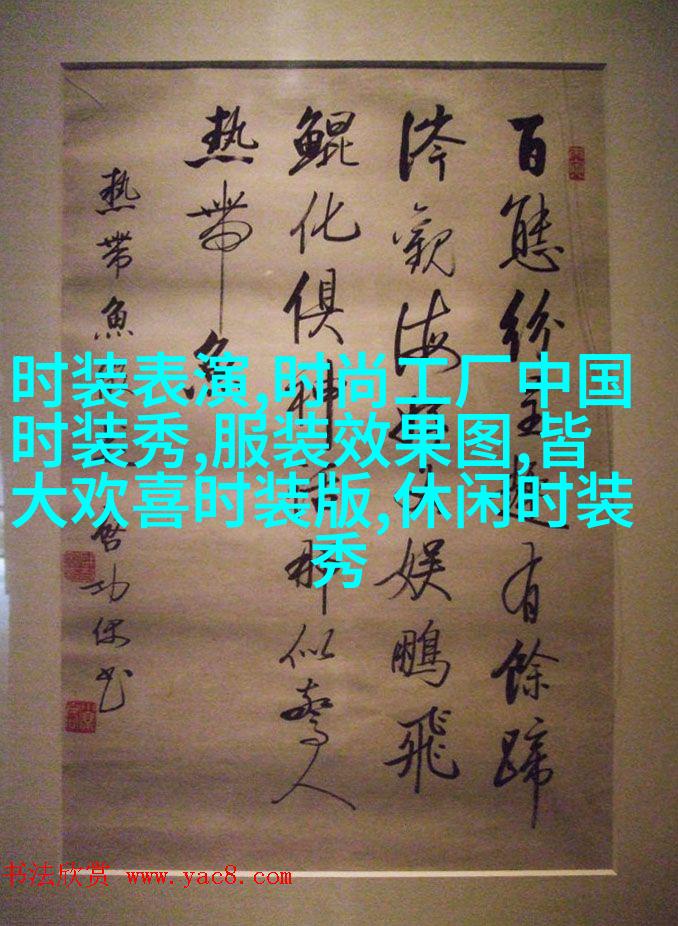 百態紛呈趣有餘蹄
涔觀海娱鵬飛
鯤化俱神話那似驚人
熱帶魚
熱帶魚啓功作书
时装表演,时尚工厂中国
时装秀,服装效果图,皆
大欢喜时装版,休闲时装
秀
书法欣赏 www.yac8.com